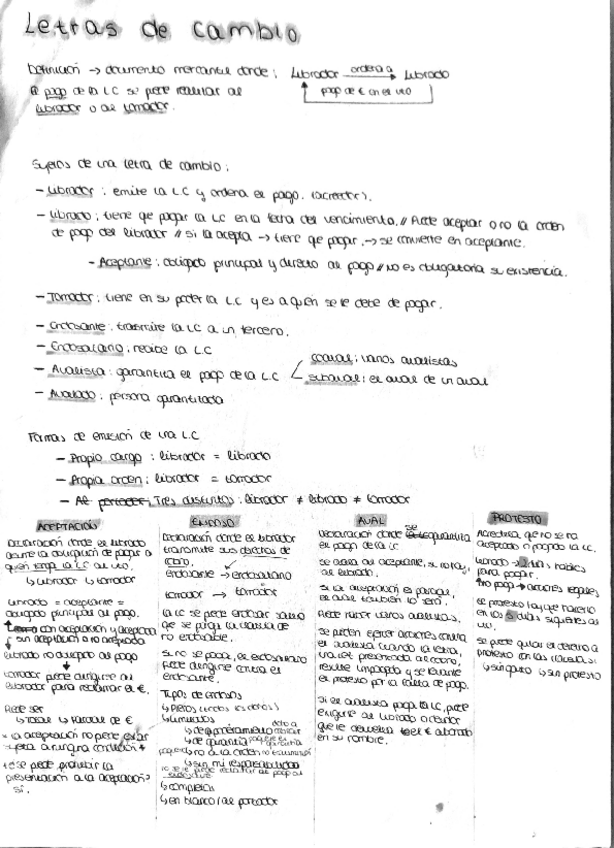 Letras de cambio
Definición → documento mercantil donde: Librador ordena a → Librado
el pago de la LC se puede realizar al pago de € en el vto
librador o al tomador.
Sujetos de una letra de cambio:
- Librador: emite la LC y ordena el pago. (acreedor).
- Librado: tiene que pagar la LC en la fecha del vencimiento. // Puede aceptar o no la orden
de pago del librador // si la acepta → tiene que pagar. → se convierte en aceptante.
- Aceptante: obligado principal y directo al pago // no es obligatoria su existencia.
- Tomador: tiene en su poder la LC y es a quien se le debe de pagar.
- Endosante: transmite la LC a un tercero.
- Endosatario: recibe la LC
- Avalista: garantiza el pago de la LC
coaval: varios avalistas
subaval: el aval de un aval
- Avalado: persona garantizada
Formas de emisión de una LC
- Propio cargo: librador = librado
- Propia orden: librador = tomador
- Al portador: Tres distintos: librador ≠ librado ≠ tomador
ACEPTACIÓN
Declaración donde el librado
asume la obligación de pagar a
quien tenga la LC al vto.
↳ librador ↳ tomador
Librado = aceptante =
obligado principal al pago.
sin aceptación o no aceptada
↓
librado no obligado al pago
↓
tomador puede dirigirse al
librador para reclamar el €.
Puede ser
↳ Total ↳ Parcial de €
* la aceptación no puede estar
sujeta a ninguna condición *
¿Se puede prohibir la
presentación a la aceptación?
Sí.
ENDOSO
Declaración donde el librador
transmite sus derechos de
cobro.
endosante → endosatario
tomador → tomador
La LC se puede endosar salvo
que se ponga la cláusula de
no endosable.
Si no se paga, el endosatario
puede dirigirse contra el
endosante.
Tipos de endosos
↳ Plenos (todos los derechos)
↳ Limitados
↳ de apoderamiento
↳ de garantía
↳ no a la orden
↳ sin mi responsabilidad
↳ completos
↳ en blanco / al portador
AVAL
Declaración donde se garantiza
el pago de la LC
Se avala al aceptante, si no hay,
al librador.
Si la aceptación es parcial,
el aval también lo será.
Puede haber varios avalistas.
Se pueden ejercer acciones contra
el avalista cuando la letra,
una vez presentada al cobro,
resulte impagada y se levante
el protesto por la falta de pago.
Si el avalista paga la LC, puede
exigirle al librado o deudor
que le devuelva el € abonado
en su nombre.
PROTESTO
Acredita que no se ha
aceptado o pagado la LC.
Librado → 2 días hábiles
para pagar.
No pago → acciones legales
El protesto hay que hacerlo
en los 8 días siguientes al
vto.
Se puede quitar el derecho a
protesto con las cláusulas:
↳ sin gastos ↳ sin protesto